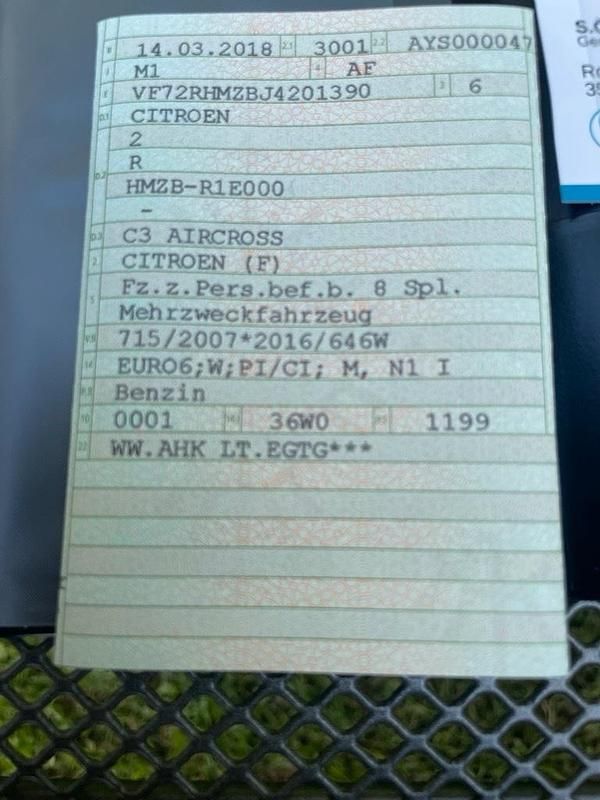 B 14.03.2018 2.1 3001 2.2 AYS000047
J M1 4 AF
E VF72RHMZBJ4201390 3 6
D.1 CITROEN
2
R
D.2
HMZB-R1E000
-
D.3 C3 AIRCROSS
2 CITROEN (F)
5 Fz.z.Pers.bef.b. 8 Spl.
Mehrzweckfahrzeug
V.9 715/2007*2016/646W
14 EURO6;W;PI/CI; M, N1 I
P.3 Benzin
10 0001 14.1 36W0 P.1 1199
22 WW.AHK LT.EGTG***
S.
Ge
R
35